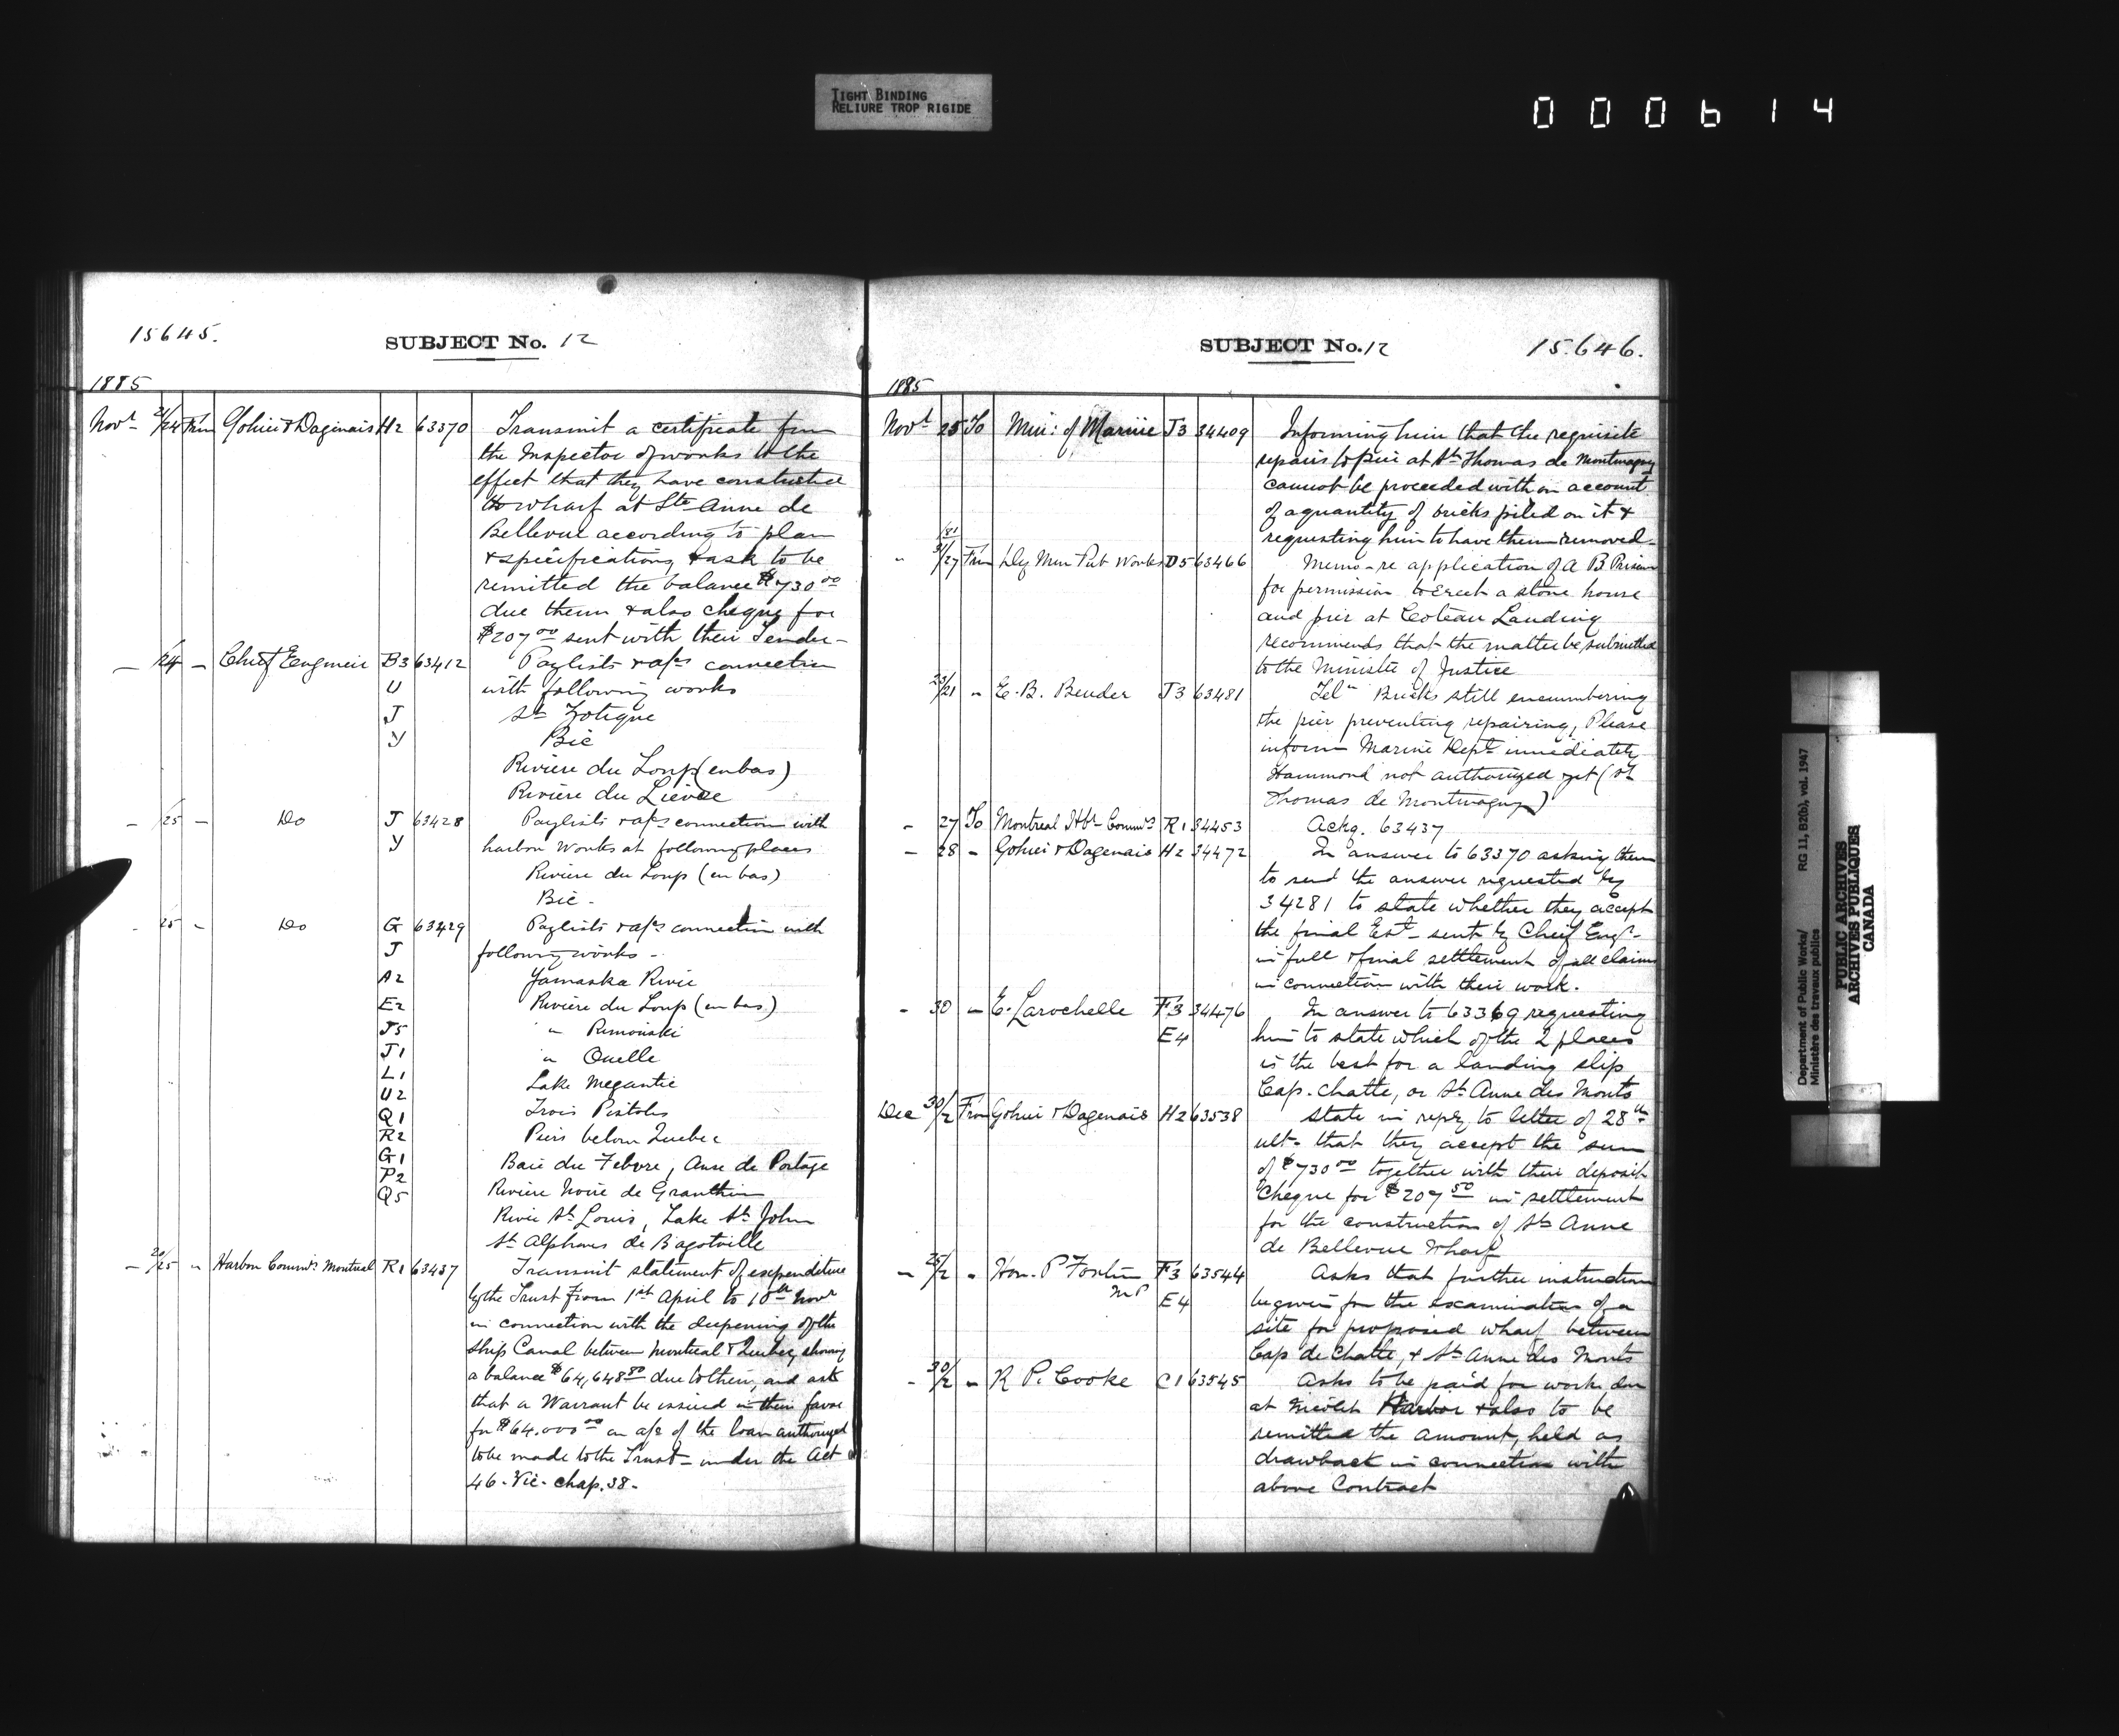 TIGHT BINDING
RELIURE TROP RIGIDE
000614
15645.
SUBJECT No. 12
1885
Novr 21/24 From Gohier & Dagenais H2 63370 Transmit a certificate from
the Inspector of works to the
effect that they have constructed
the wharf at Ste Anne de
Bellevue according to plan
& specifications, & ask to be
remitted the balance $730.00
due them & also cheque for
$207.00 sent with their Tender -
— /24 — Chief Engineer B3 63412 Paylists & a/cs connection
U with following works
J St Zotique
Y Bic
Rivière du Loup (en bas)
Rivière du Lièvre
— /25 — Do J 63428 Paylists & a/cs connection with
Y harbor works at following places
Rivière du Loup (en bas)
Bic -
- 25 - Do G 63429 Paylists & a/cs connection with
J following works -
A2 Yamaska River
E2 Rivière du Loup (en bas)
J5 " Rimouski
J1 " Ouelle
L1 Lake Megantic
U2 Trois Pistoles
Q1
R2 Piers below Quebec
G1 Baie du Febvre, Anse du Portage
P2
Q5 Rivière Noire de Granthim
River St Louis, Lake St John
St Alphonse de Bagotville
— 20/25 " Harbor Commrs Montreal R1 63437 Transmit statement of expenditure
by the Trust from 1st April to 10th Novr
in connection with the deepening of the
Ship Canal between Montreal & Quebec, showing
a balance $64,648.80 due to them, and ask
that a Warrant be issued in their favor
for $64.000.00 on a/c of the loan authorized
to be made to the Trust - under the Act
46 - Vic - chap. 38 -
SUBJECT No. 12
15.646.
1885
Novr 25 To Min: of Marine J3 34409 Informing him that the requisite
repairs to pier at St Thomas de Montmagny
cannot be proceeded with on account
of a quantity of bricks piled on it &
requesting him to have them removed -
" 31/27 From Dy Min Pub Works D5 63466 Memo - re application of A B
for permission to erect a stone house
and pier at Coteau Landing
recommends that the matter be submitted
to the Minister of Justice
23/21 " E. B. Bender J3 63481 Telm Bricks still encumbering
the pier preventing repairing, Please
inform Marine Dept immediately
Hammond not authorized yet (St
Thomas de Montmagny)
- 27 To Montreal Hbr Commrs R1 34453 Ackg. 63437
— 28 - Gohier & Dagenais H2 34472 In answer to 63370 asking them
to send the answer requested by
34281 to state whether they accept
the final Est - sent by Cheif Engr -
in full & final settlement of all claims
in connection with their work.
- 30 — E. Larochelle F3 34476 In answer to 63369 requesting
E4 him to state which of the 2 places
is the best for a landing slip
Cap - Chatte, or St Anne des Monts
Dec 30/2 From Gohier & Dagenais H2 63538 State in reply to letter of 28th
ult - that they accept the sum
of $730.00 together with their deposit
Cheque for $207.50 in settlement
for the construction of Ste Anne
de Bellevue Wharf
— 25/2 " Hon. P Fortin F3 63544 Asks that further instructions
MP E4 be given for the examination of a
site for proposed wharf between
Cap de Chatte, & St Anne des Monts
- 30/2 — R P. Cooke C1 63545 Asks to be paid for work due
at Nicolet Harbor & also to be
remitted the amount, held as
drawback in connection with
above Contract
Department of Public Works/
Ministère des travaux publics
RG 11, B2(b), vol. 1947
PUBLIC ARCHIVES
ARCHIVES PUBLIQUES
CANADA